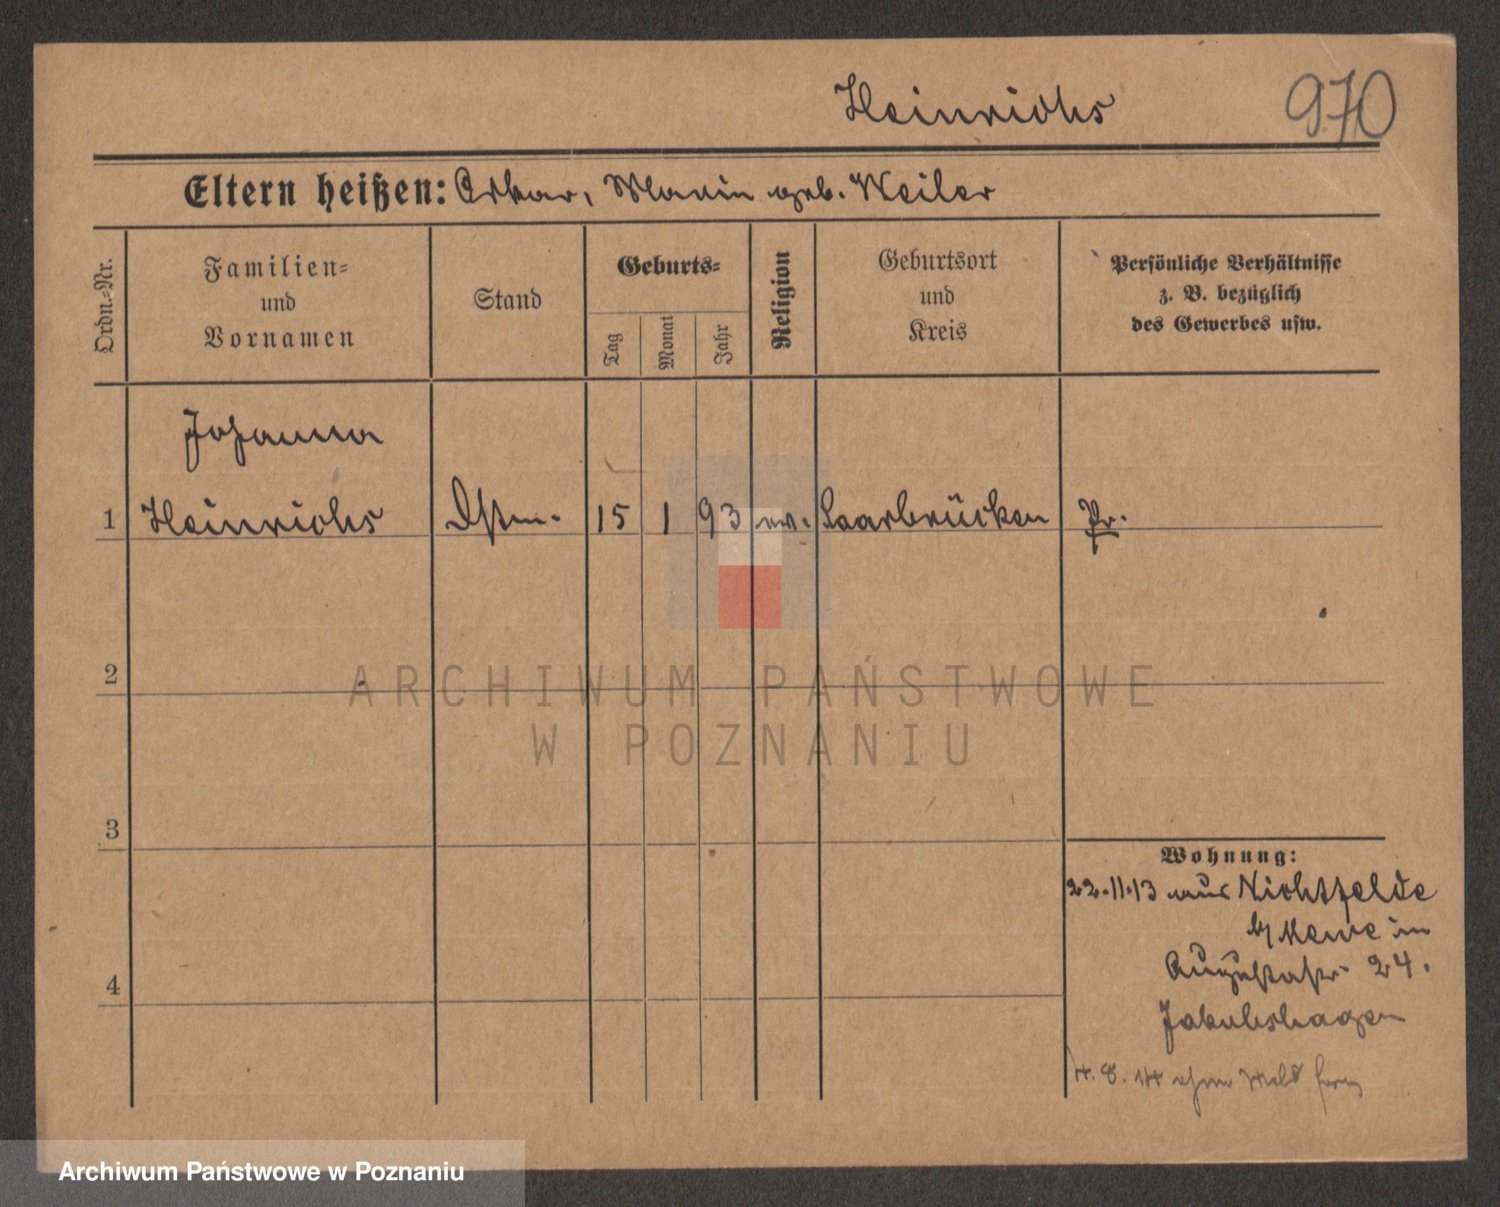 Heinrichs 970
Eltern heißen: Oskar, Marie geb. Weiler
Ordn.-Nr.
Familien-
und
Vornamen
Stand
Geburts-
Tag
Monat
Jahr
Religion
Geburtsort
und
Kreis
Persönliche Verhältnisse
z. B. bezüglich
des Gewerbes usw.
Johanna
1 Heinrichs 15 1 93 ev. Saarbrücken Pr.
2
3
4
Wohnung:
22.11.13 aus Nichtsfelde
b/ Mewe in
Augustastr. 24.
Jakobshagen
4.8.14 ohne Meld
ARCHIWUM PAŃSTWOWE
W POZNANIU
Archiwum Państwowe w Poznaniu